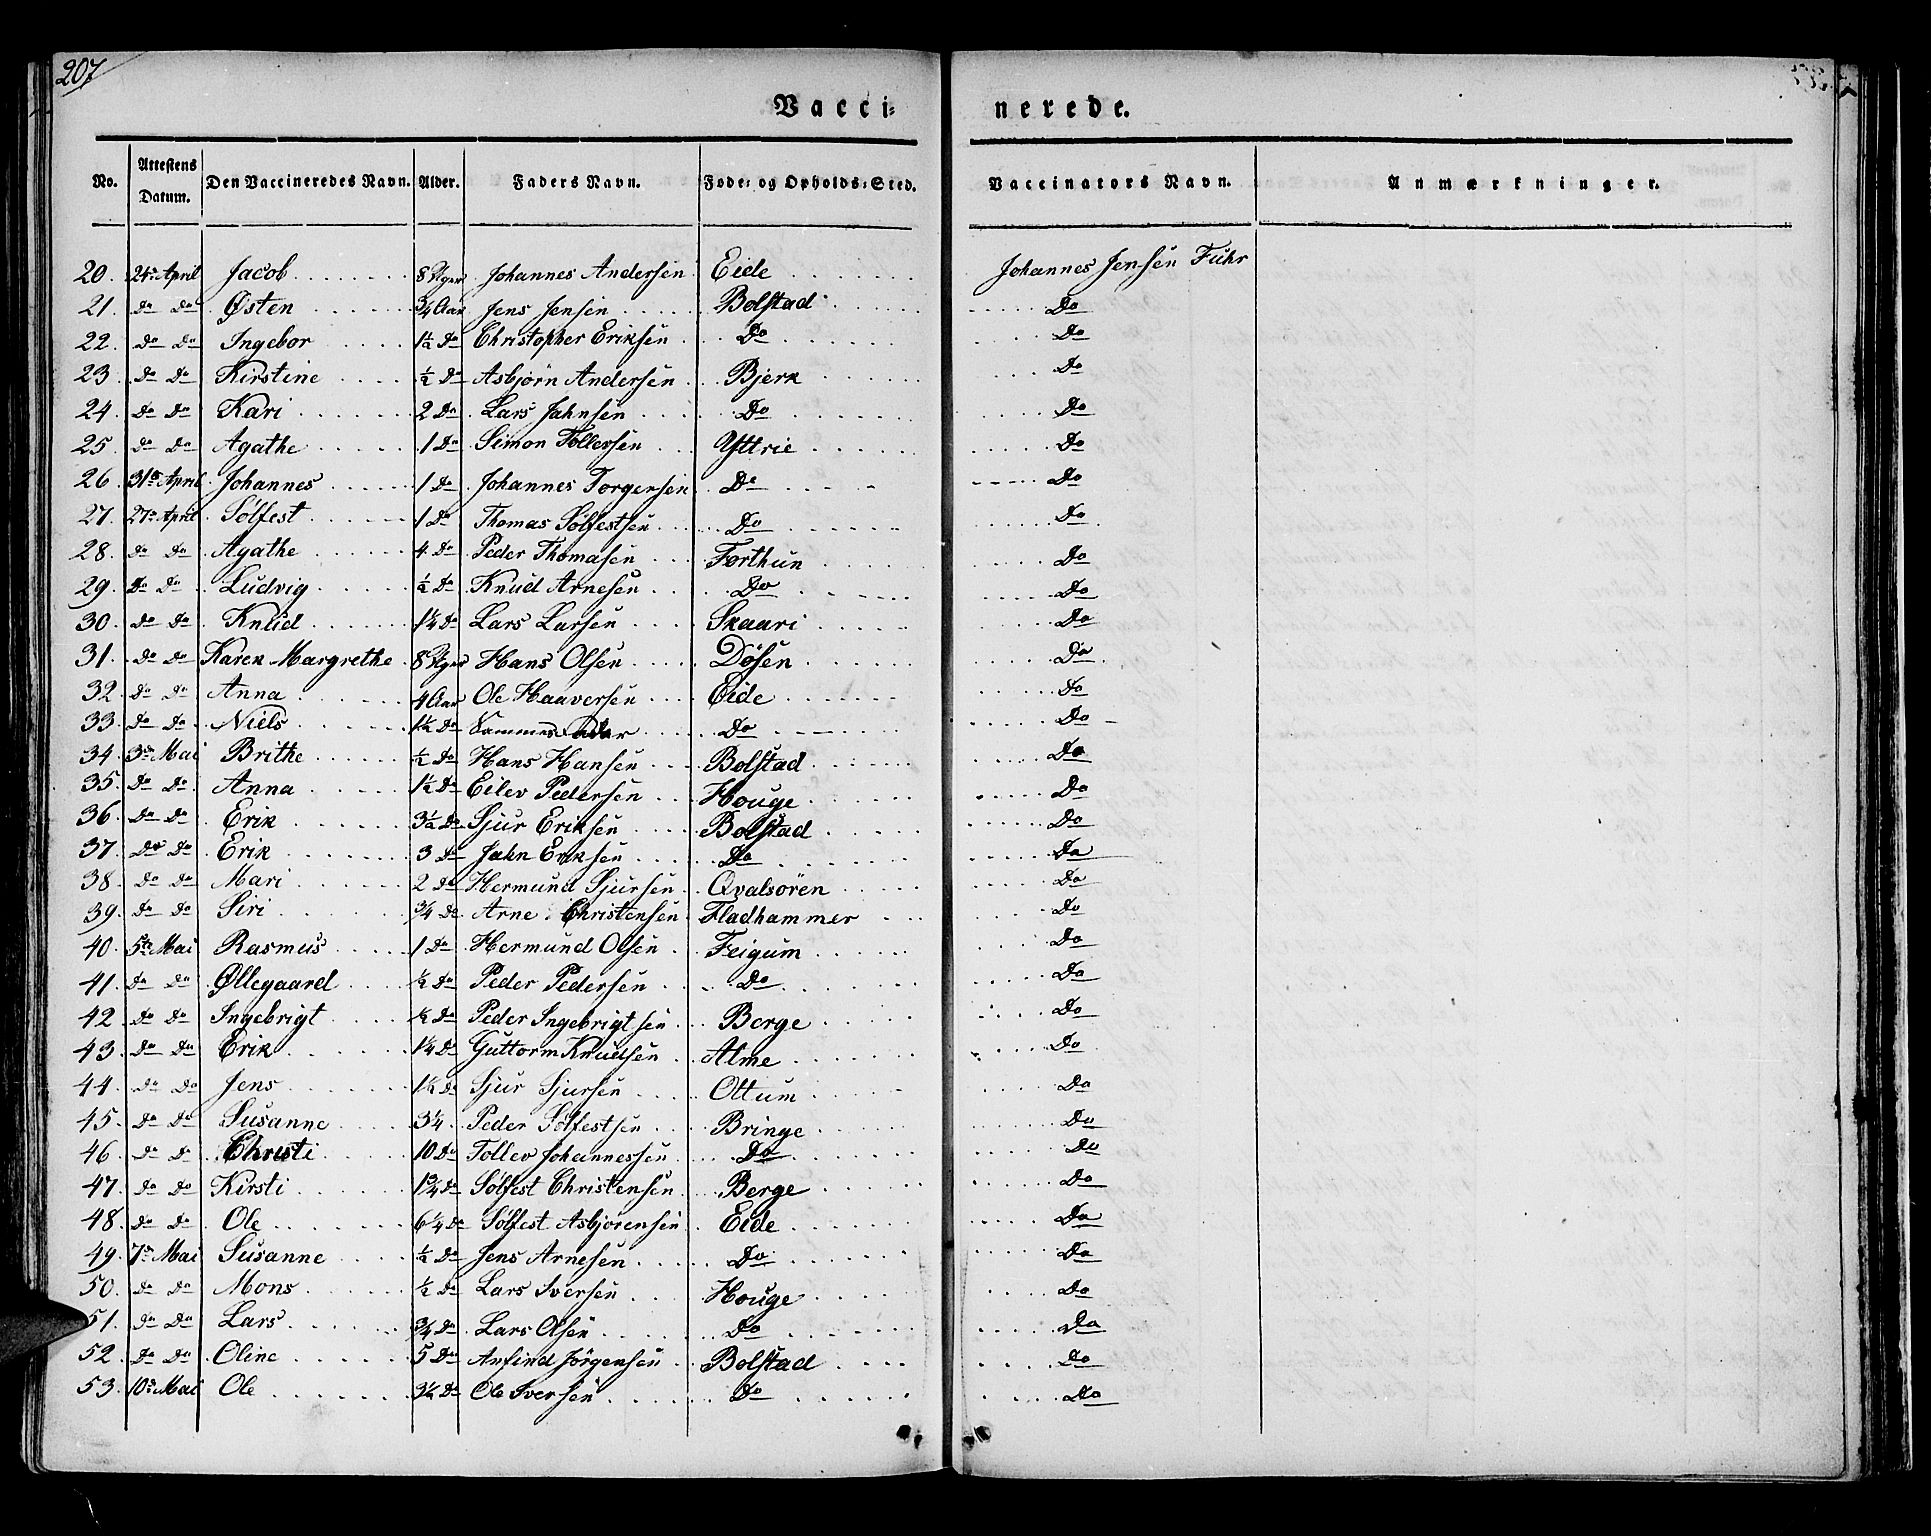 207
Vacci= nerede.
No. Attestens Datum. Den Vaccineredes Navn. Alder. Faders Navn. Føde= og Opholds=Sted. Vaccinators Navn. Anmærkninger.
20. 24de April Jacob 8 Uger Johannes Andersen Eide Johannes Jensen Fuhr
21. Do Do Østen 3/4 Aar Jens Jensen Bolstad Do
22. Do Do Ingebor 1 1/2 Do Christopher Eriksen Do Do
23. Do Do Kirstine 1/2 Do Asbjørn Andersen Bjerk Do
24. Do Do Kari 2 Do Lars Jahnsen Do Do
25. Do Do Agathe 1 Do Simon Tollersen Yttrie Do
26. 31te April Johannes 1 Do Johannes Torgersen Do Do
27. 27de April Sølfest 1 Do Thomas Sølfestsen Do Do
28. Do Do Agathe 4 Do Peder Thomasen Forthun Do
29. Do Do Ludvig 1/2 Do Knud Arnesen Do Do
30. Do Do Knud 1 1/4 Do Lars Larsen Skaari Do
31. Do Do Karen Margrethe 8 Uger Hans Olsen Døsen Do
32. Do Do Anna 4 Aar Ole Haaversen Eide Do
33. Do Do Niels 1 1/2 Do Sammes Do Do
34. 3de Mai Brithe 1/2 Do Hans Hansen Bolstad Do
35. Do Do Anna 1 1/2 Do Eilev Pedersen Houge Do
36. Do Do Erik 3 1/2 Do Sjur Eriksen Bolstad Do
37. Do Do Erik 3 Do Jahn Eriksen Do Do
38. Do Do Mari 2 Do Hermund Sjursen Qvalsøren Do
39. Do Do Siri 3/4 Do Arne Christensen Fladhammer Do
40. 5te Mai Rasmus 1 Do Hermund Olsen Feigum Do
41. Do Do Øllegaard 1/2 Do Peder Pedersen Do Do
42. Do Do Ingebrigt 1/2 Do Peder Ingebrigtsen Berge Do
43. Do Do Erik 1 1/4 Do Guttorm Knudsen Alme Do
44. Do Do Jens 1 1/2 Do Sjur Sjursen Ottum Do
45. Do Do Susanne 3 1/4 Peder Sølfestsen Bringe Do
46. Do Do Christi 10 Do Tollev Johannessen Do Do
47. Do Do Kirsti 1 3/4 Do Sølfest Christensen Berge Do
48. Do Do Ole 6 1/4 Do Sølfest Asbjørensen Eide Do
49. 7de Mai Susanne 1/2 Do Jens Arnesen Do Do
50. Do Do Mons 1/2 Do Lars Iversen Houge Do
51. Do Do Lars 3/4 Do Lars Olsen Do Do
52. Do Do Oline 5 Do Anfind Jørgensen Bolstad Do
53. 10de Mai Ole 3 1/2 Do Ole Iversen Do Do